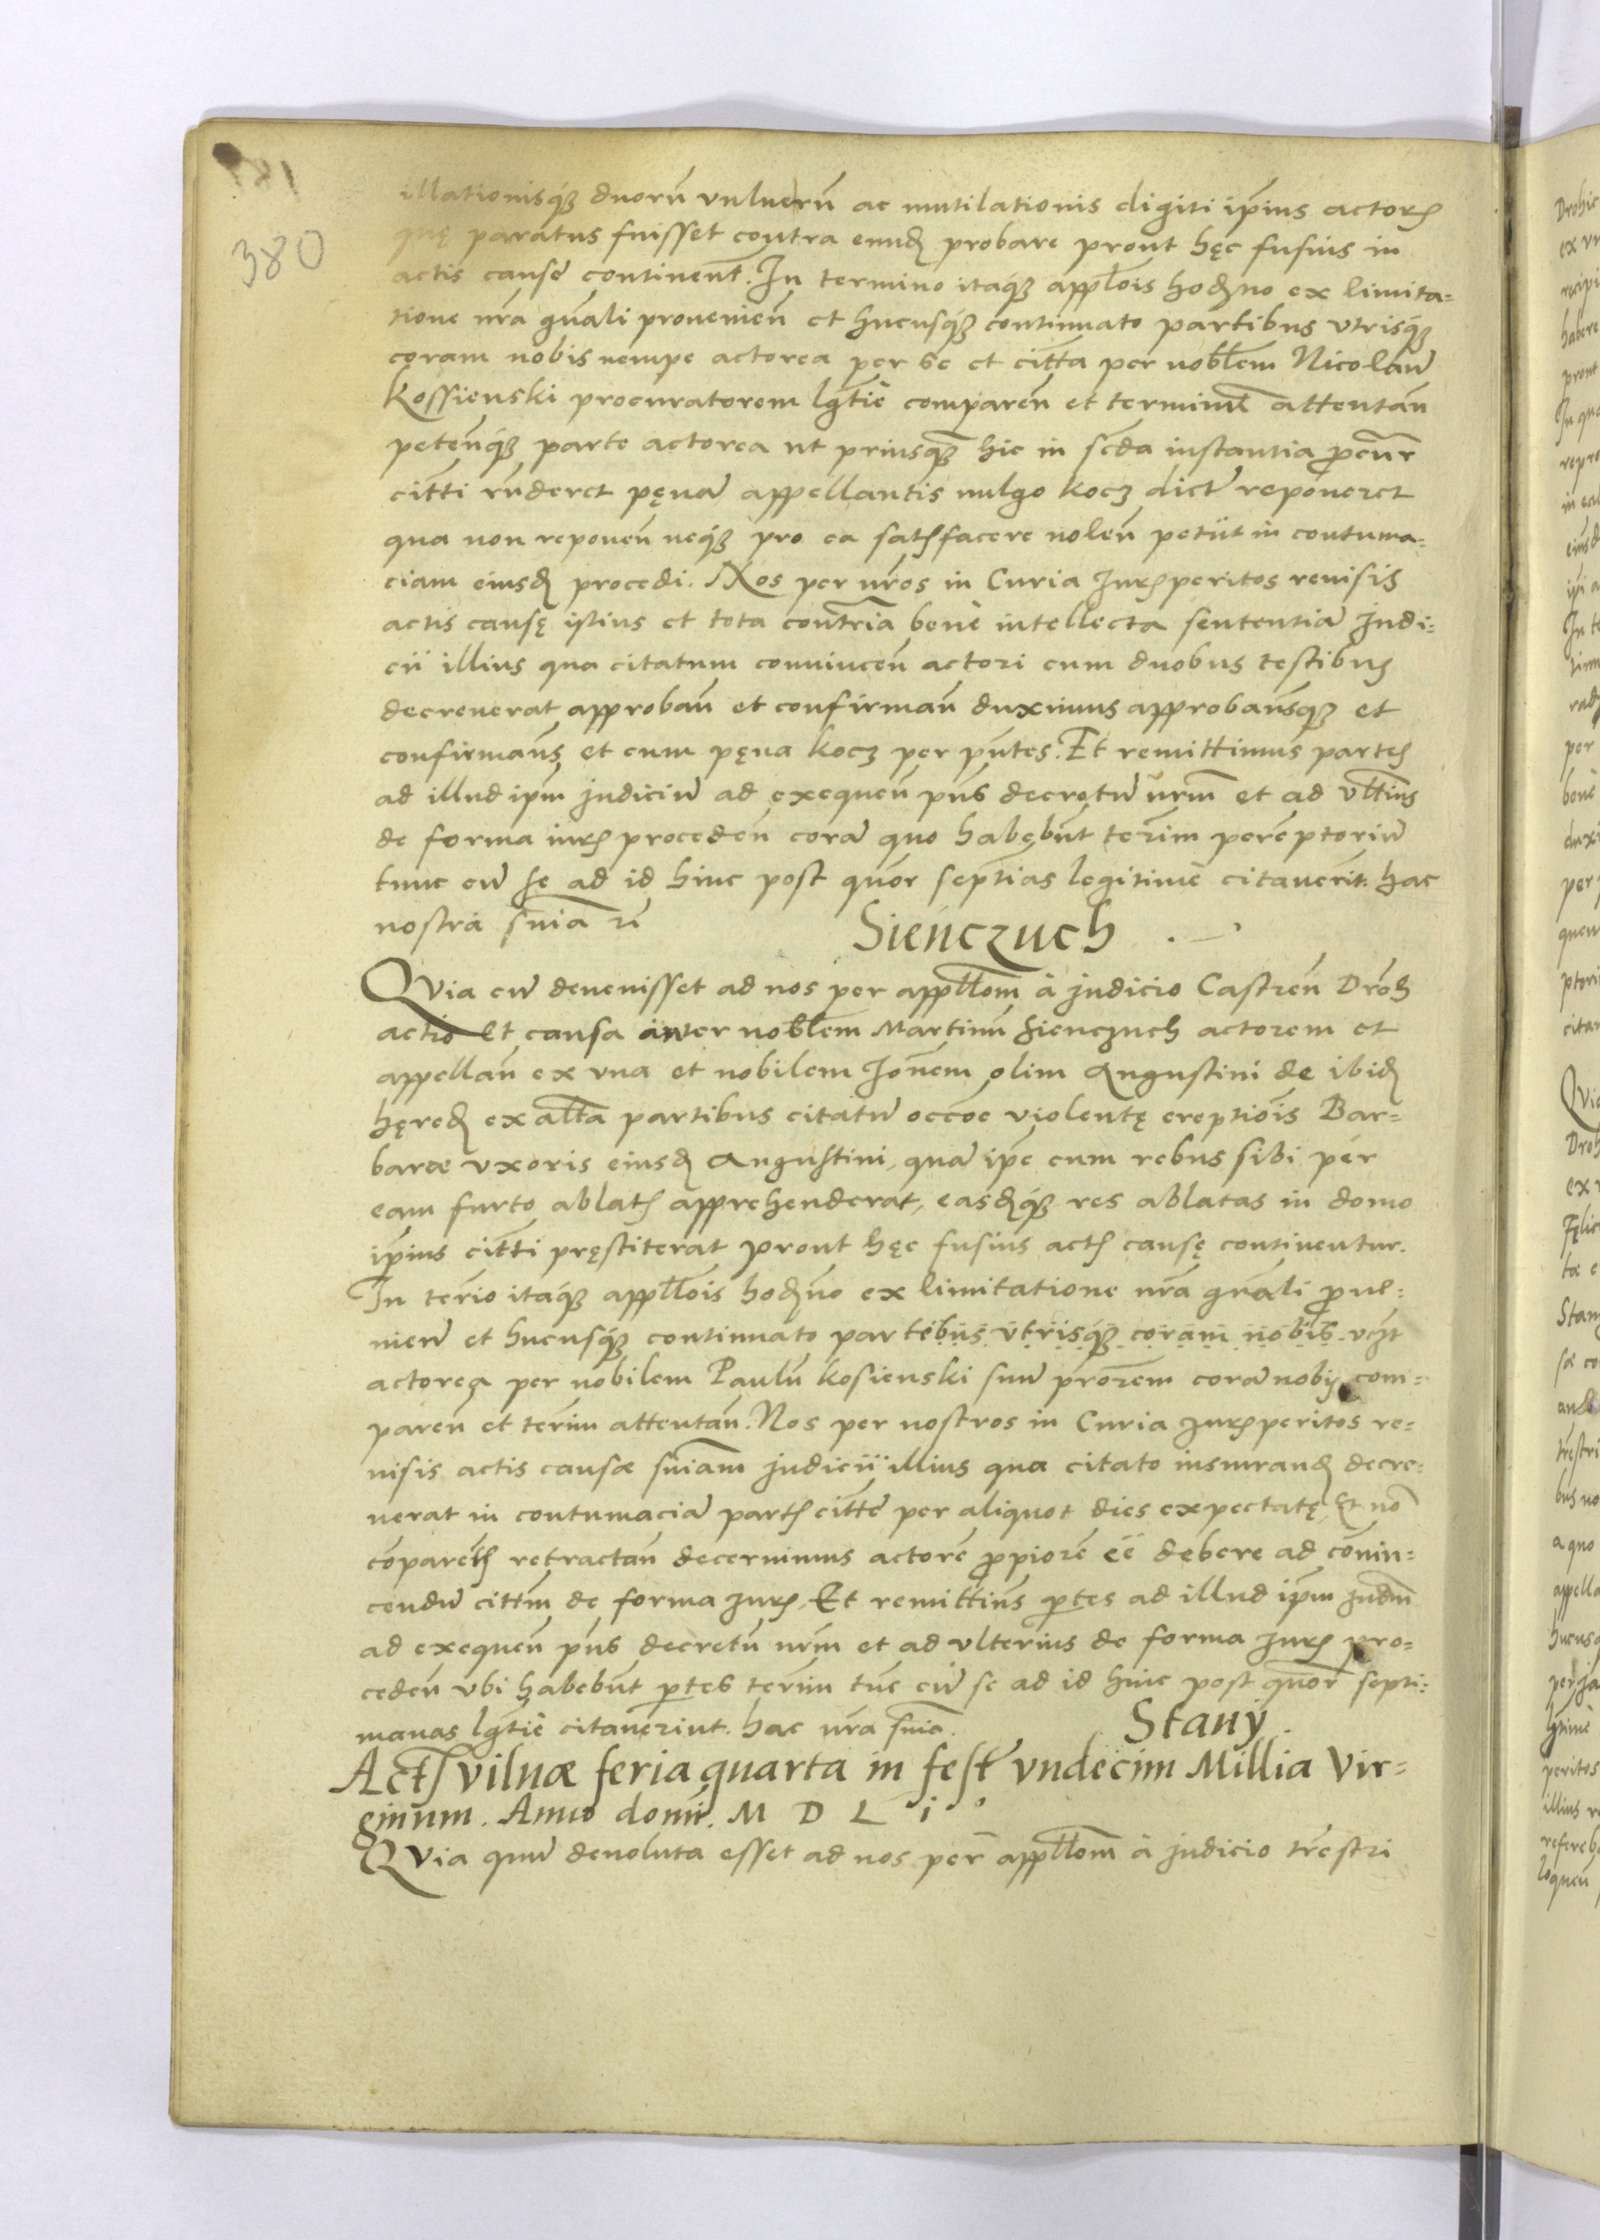 380
illationisq3 duorū vulnerū ac mutilationis digiti ipius actoris
quę paratus fuisset contra eundē probare prout hęc fusius in
actis cause continent. In termino itaq3 applois hodrno ex limita=
tione nra gnali provenien et hucusq3 continuato partibus vtrisq3
coram nobis nempe actorea per se et citta per noblem Nicolaū
Kossienski procuratorem lgtie comparen et terminū attentan
petenq3 parte actorea ut priusq3 hic in scda instantia procur
citti rnderet pęnā appellantis vulgo kocz dict reponeret
qua non reponen neq3 pro ea satisfacere nolen petiit in contuma=
ciam eiusd procedi. Nos per nros in Curia Jurisperitos revisis
actis causę istius et tota contrria bene intellecta sententiā Judi=
cii illius qua citatum convincen actori cum duobus testibus
decreverat approban et confirman duximus approbamsq3 et
confirmams et cum pęna kocz per pntes. Et remittimus partes
ad illud ipm judiciū ad exequen pns decretū nrm et ad vlttius
de forma iuris proceden corā quo habebunt termim peremptoriū
tunc cū se ad id hinc post quor septias legitime citaverit. hac
nostra snia rē
Sienczuch
QVia cū devenisset ad nos per appllom à judicio Castren Droh
actio Et causa inter noblem Martinū Sienczuch actorem et
appellan ex vna et nobilem Jonem olim Augustini de ibid
hęred ex altta partibus citatū occoe violentę ereptiois Bar=
baræ vxoris eiusd Augustini, quā ipe cum rebus sibi per
eam furto ablatis apprehenderat, easdq3 res ablatas in domo
ipius citti pręstiterat prout hęc fusius actis causę continentur.
In terio itaq3 applois hodrno ex limitatione nra gnali prove=
nien et hucusq3 continuato partibus vtrisq3 coram nobis vczt
actorea per nobilem Paulū Kosienski suū prorem corā nobis com=
paren et termi attentan. Nos per nostros in Curia Jurisperitos re=
visis actis causæ sniam judicii illius qua citato iusiurand decre=
verat in contumaciā partis citte per aliquot dies expectatę Et no
comparetis retractan decernimus actore propiore ee debere ad convin=
cendū cittm de forma Juris. Et remittims ptes ad illud ipm judm
ad exequen pns decretū nrm et ad vlterius de forma Juris pro=
ceden vbi habebunt ptes termi tuc cū se ad id hinc post quor septi=
manas lgtie citaverint. hac nra snia.
Stany
Actis vilnæ feria quarta in fest vndecim Millia Vir=
ginum. Anno domi. M D L i
QVia quū devoluta esset ad nos per appllom à judicio trestri